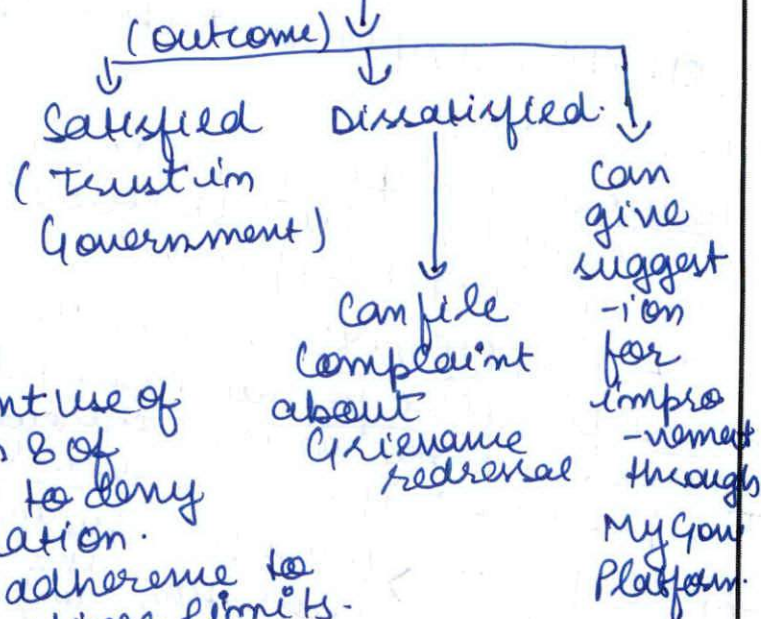 (outcome)
Satisfied
(Trust in
Government)
Dissatisfied.
Can file
Complaint
about
Grievance
redressal
can
give
suggest
-ion
for
impro
-vement
through
MyGov
Platform.
nt use of
8 of
to deny
ation.
adherence to
limits.